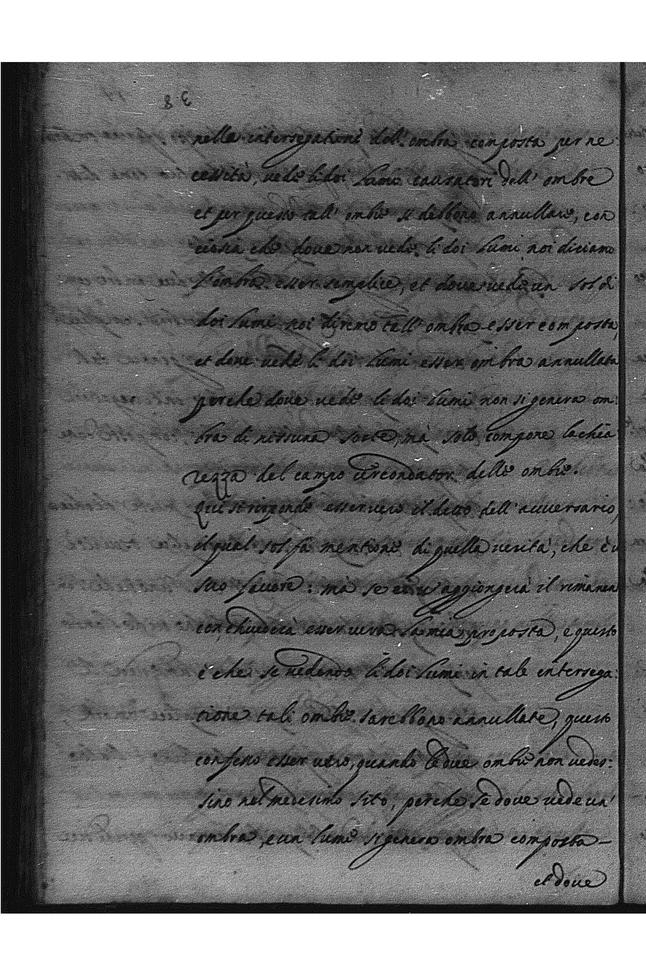 38
nella intersegatione dell'ombra composta per ne:
cessità, vede li doi lumi causatori dell'ombre
et per questo tall'ombre si debbono annullare, con
ciosia che dove non vede li doi lumi noi diciamo
l'ombra esser semplice, et dove vede un sol di
doi lumi noi diremo tall'ombra esser composta,
et dove vede li doi lumi esser ombra annullata
perche dove vede li doi lumi non si genera om:
bra di nissuna sorte, mà solo compone la chia:
rezza del campo circondator delle ombre.
Qui si risponde esser vero il detto dell'avversario,
il qual sol fà mentione di quella verità, che è in
suo favore: mà se aggiongerà il rimanen
te, chiuderà esser vera la mia proposta, e questo
è che se vedendo li doi lumi in tale intersega:
tione tali ombre sarebbono annullate, questo
confesso esser vero, quando le due ombre non vedes:
sino nel medesimo sito, perche se dove vede un'
ombra, e un lume si genera ombra composta –
et dove